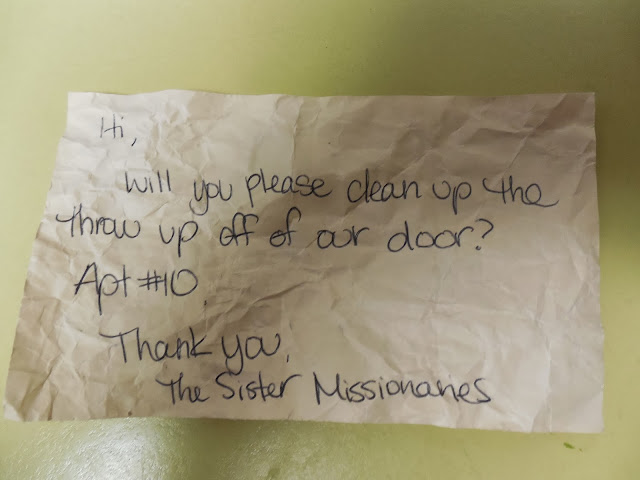 Hi,
Will you please clean up the
throw up off of our door?
Apt #10
Thank you,
The Sister Missionaries